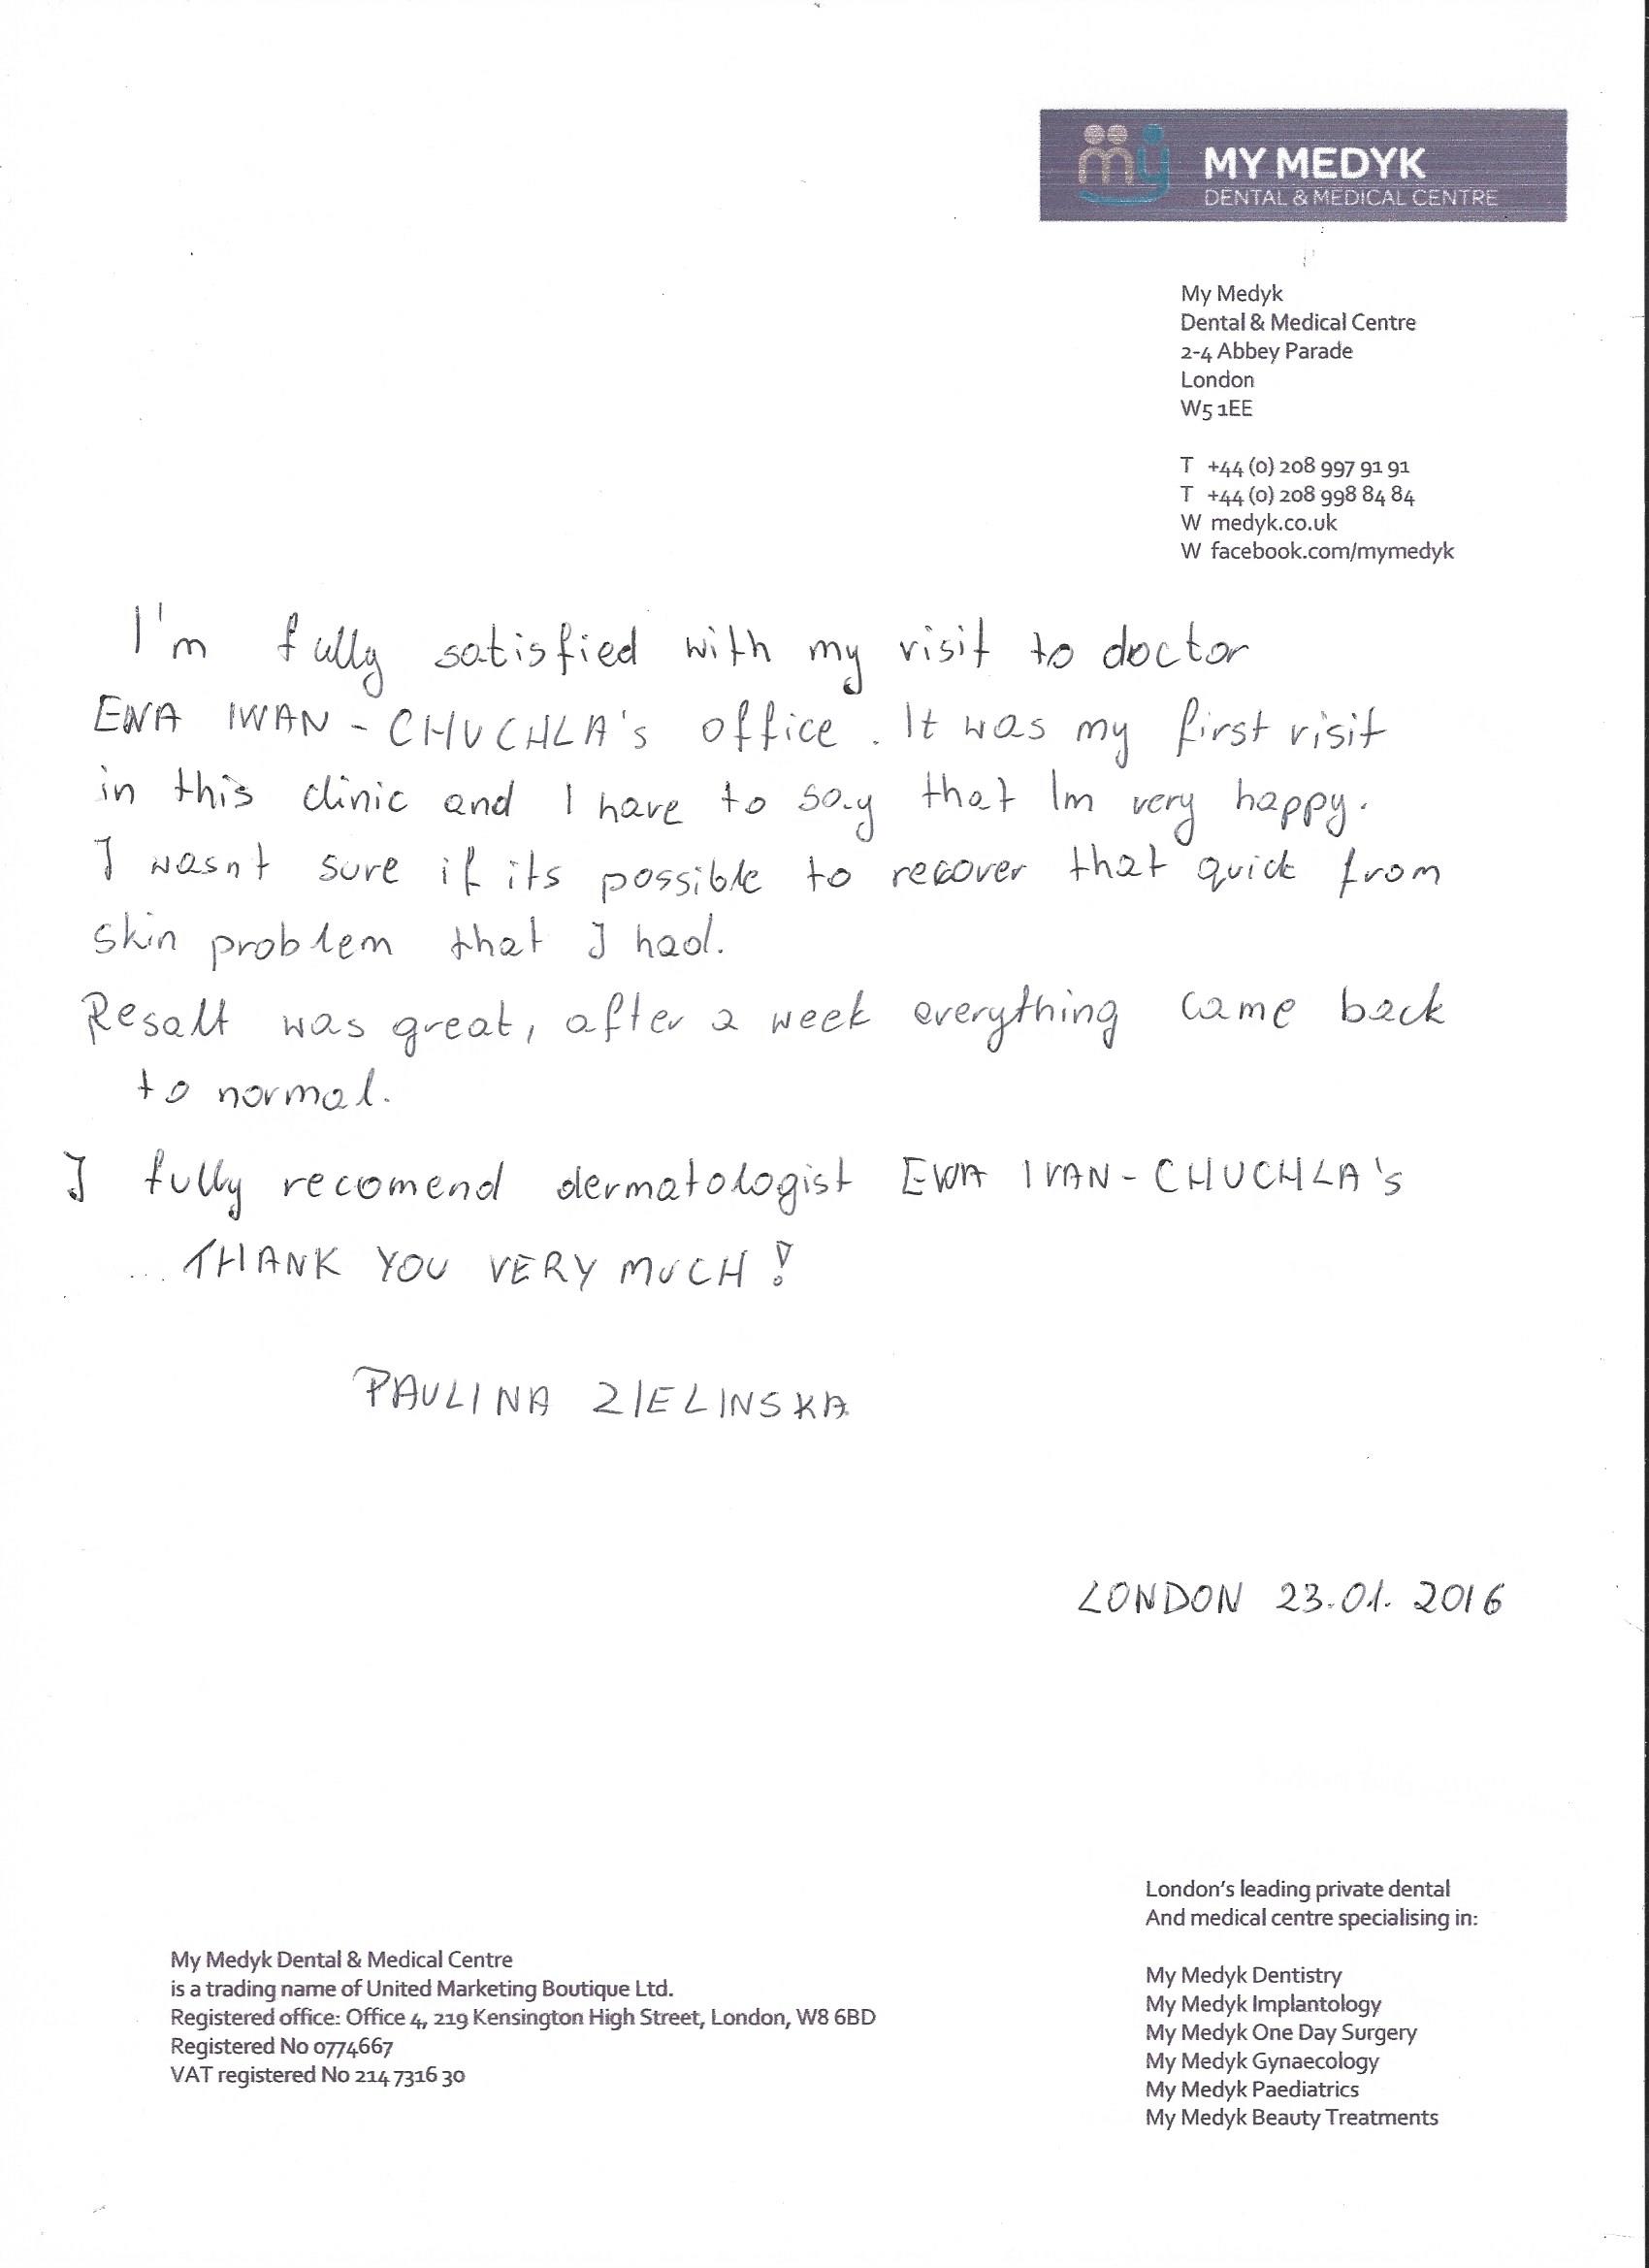 my MY MEDYK
DENTAL & MEDICAL CENTRE
My Medyk
Dental & Medical Centre
2-4 Abbey Parade
London
W5 1EE
T +44 (0) 208 997 91 91
T +44 (0) 208 998 84 84
W medyk.co.uk
W facebook.com/mymedyk
I'm fully satisfied with my visit to doctor
EWA IWAN - CHUCHLA's office. It was my first visit
in this clinic and I have to say that Im very happy.
I wasnt sure if its possible to recover that quick from
skin problem that I had.
Resalt was great, after a week everything came back
to normal.
I fully recomend dermatologist EWA IVAN - CHUCHLA's
... THANK YOU VERY MUCH!
PAULINA ZIELINSKA
LONDON 23.01.2016
London's leading private dental
And medical centre specialising in:
My Medyk Dentistry
My Medyk Implantology
My Medyk One Day Surgery
My Medyk Gynaecology
My Medyk Paediatrics
My Medyk Beauty Treatments
My Medyk Dental & Medical Centre
is a trading name of United Marketing Boutique Ltd.
Registered office: Office 4, 219 Kensington High Street, London, W8 6BD
Registered No 0774667
VAT registered No 214 7316 30